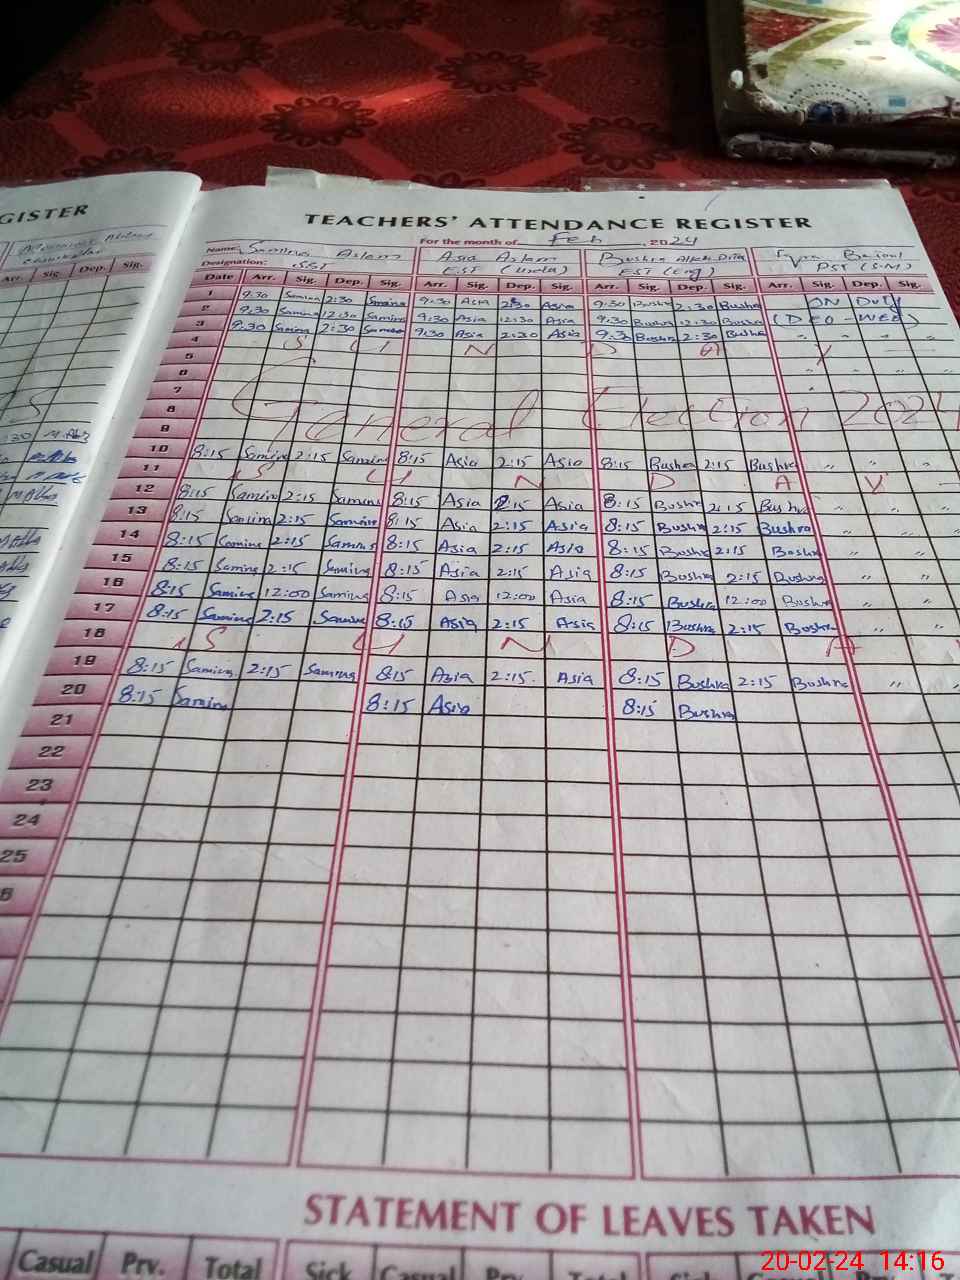 GISTER
TEACHERS' ATTENDANCE REGISTER
For the month of Feb, 2024
Name: Samina Aslam Asia Aslam Bushra Allah Ditta
Designation: SST EST (Urdu) EST (Eng) PST (S.M)
Arr. Sig. Dep. Sig. Date Arr. Sig. Dep. Sig. Arr. Sig. Dep. Sig. Arr. Sig. Dep. Sig. Arr. Sig. Dep. Sig.
1 9:30 Samina 2:30 Samina 9:30 Asia 2:30 Asia 9:30 Bushra 2:30 Bushra ON Duty
2 9:30 Samina 12:30 Samina 9:30 Asia 12:30 Asia 9:30 Bushra 12:30 Bushra (DEO-WEE)
3 9:30 Samina 2:30 Samina 9:30 Asia 2:30 Asia 9:30 Bushra 2:30 Bushra " " "
4 S U N D A Y
5
6
7
8 General Election 2024
9
10 8:15 Samina 2:15 Samina 8:15 Asia 2:15 Asia 8:15 Bushra 2:15 Bushra " "
11 S U N D A Y
12 8:15 Samina 2:15 Samina 8:15 Asia 2:15 Asia 8:15 Bushra 2:15 Bushra " "
13 8:15 Samina 2:15 Samina 8:15 Asia 2:15 Asia 8:15 Bushra 2:15 Bushra " "
14 8:15 Samina 2:15 Samina 8:15 Asia 2:15 Asia 8:15 Bushra 2:15 Bushra " "
15 8:15 Samina 2:15 Samina 8:15 Asia 2:15 Asia 8:15 Bushra 2:15 Bushra " "
16 8:15 Samina 12:00 Samina 8:15 Asia 12:00 Asia 8:15 Bushra 12:00 Bushra " "
17 8:15 Samina 2:15 Samina 8:15 Asia 2:15 Asia 8:15 Bushra 2:15 Bushra " "
18 S U N D A
19 8:15 Samina 2:15 Samina 8:15 Asia 2:15 Asia 8:15 Bushra 2:15 Bushra " "
20 8:15 Samina 8:15 Asia 8:15 Bushra
21
22
23
24
25
STATEMENT OF LEAVES TAKEN
Casual Prv. Total Sick Casual Prv.
20-02-24 14:16